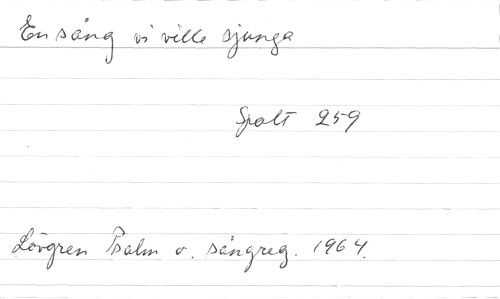 En sång vi ville sjunga
Spalt 259
Lövgren Psalm o. sångreg. 1964.